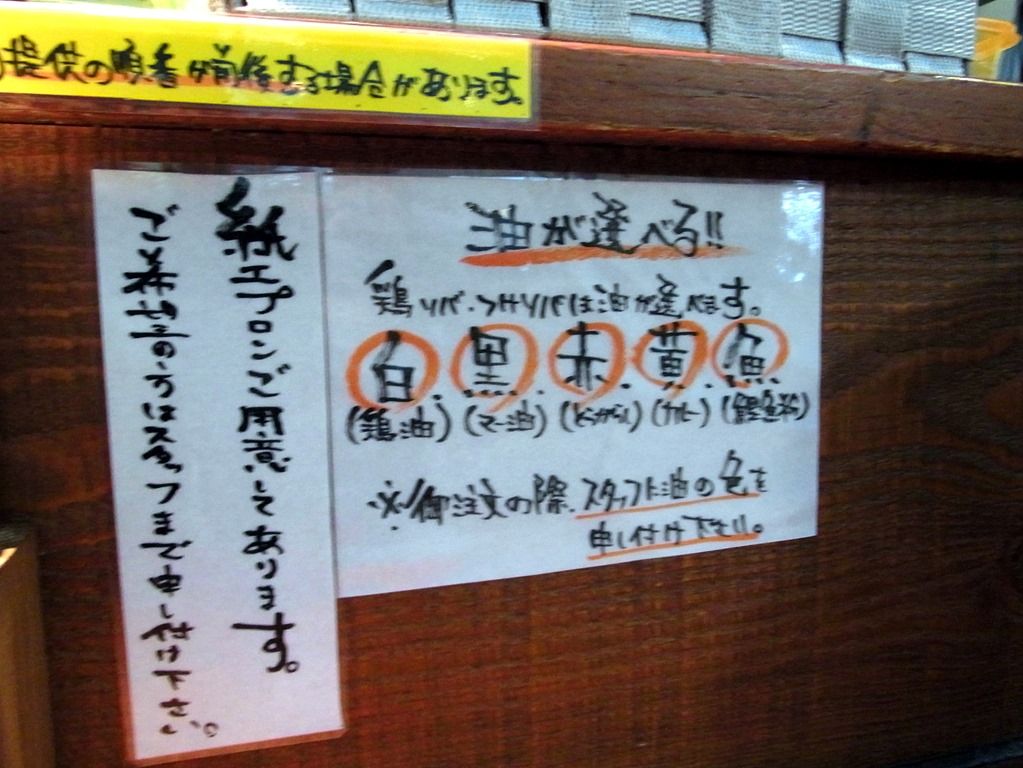 提供の順番が前後する場合があります。
油が選べる!!
鶏ソバ・つけソバは油が選べます。
白・黒・赤・黄・魚
(鶏油) (マー油) (とうがらし) (カレー) (鰹魚粉)
※御注文の際、スタッフに油の色を
申し付け下さい。
紙エプロンご用意してあります。
ご希望の方はスタッフまで申し付け下さい。